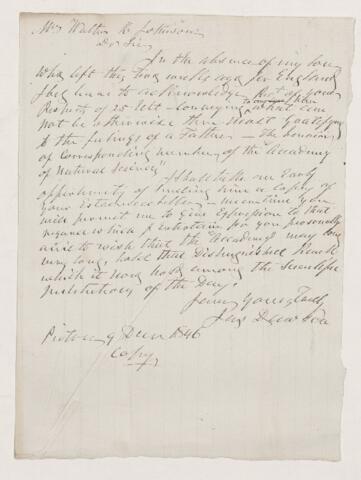 Mr Walter R Johnson
Dr Sir
In the absence of my son
who left this two weeks ago for England
I beg leave to acknowledge Rect of your
Respect of 25 Octr - Conveying to him what can
not be otherwise then most Gratifying
to the feelings of a Father - the honour
of Corresponding member of the "Academy
of Natural Sciences"
I shall take an Early
opportunity of sending him a Copy of
your Esteemed letter - meantime you
will permit me to Give Expression to that
regard which I entertain for you personally
and to wish that the Academy may long
very long, hold that Distinguished Rank
which it now holds among the Scientific
Institutions of the Day.
Yours Truly
Jas Dawson
Pictou 9 Decr 1846
Copy